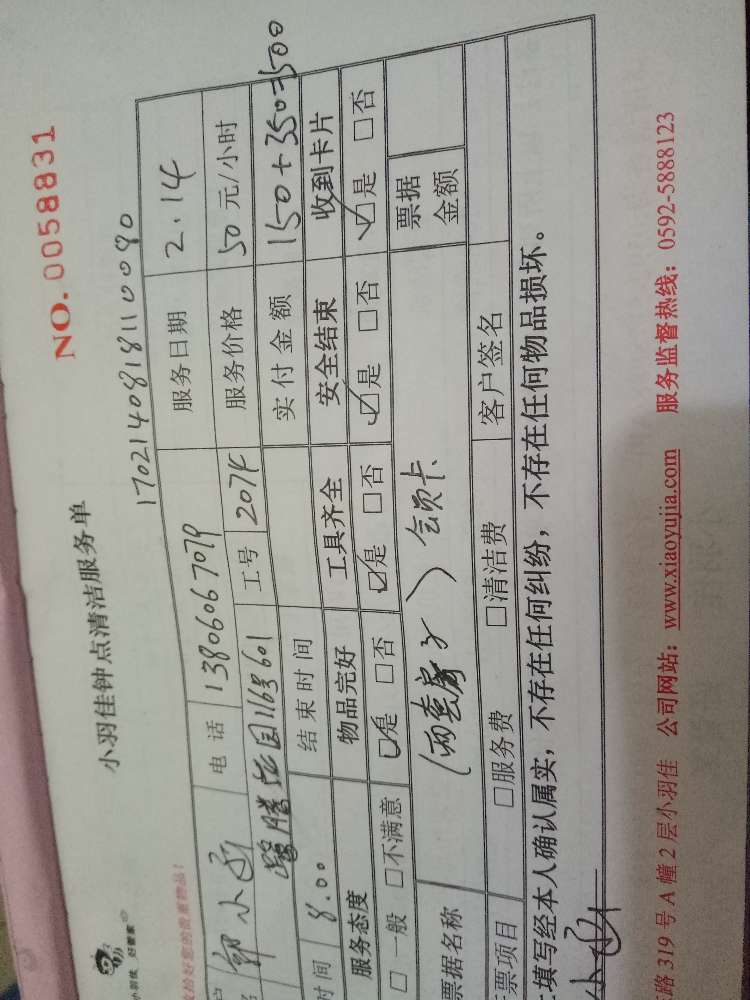 小羽佳 好管家
小羽佳钟点清洁服务单
NO. 0058831
1702140818110090
收拾好您的贵重物品!
郭小函 电话 13806067079 服务日期 2.14
腾花园1163601 工号 2074 服务价格 50元/小时
时间 8:00 结束时间 实付金额 150+350=500
服务态度 物品完好 工具齐全 安全结束 收到卡片
□一般 □不满意 ☑是 □否 ☑是 □否 ☑是 □否 ☑是 □否
票据名称 (两套房子) 会员卡 票据金额
票项目 □服务费 □清洁费 客户签名
填写经本人确认属实,不存在任何纠纷,不存在任何物品损坏。
路319号A幢2层小羽佳 公司网站:www.xiaoyujia.com 服务监督热线:0592-5888123